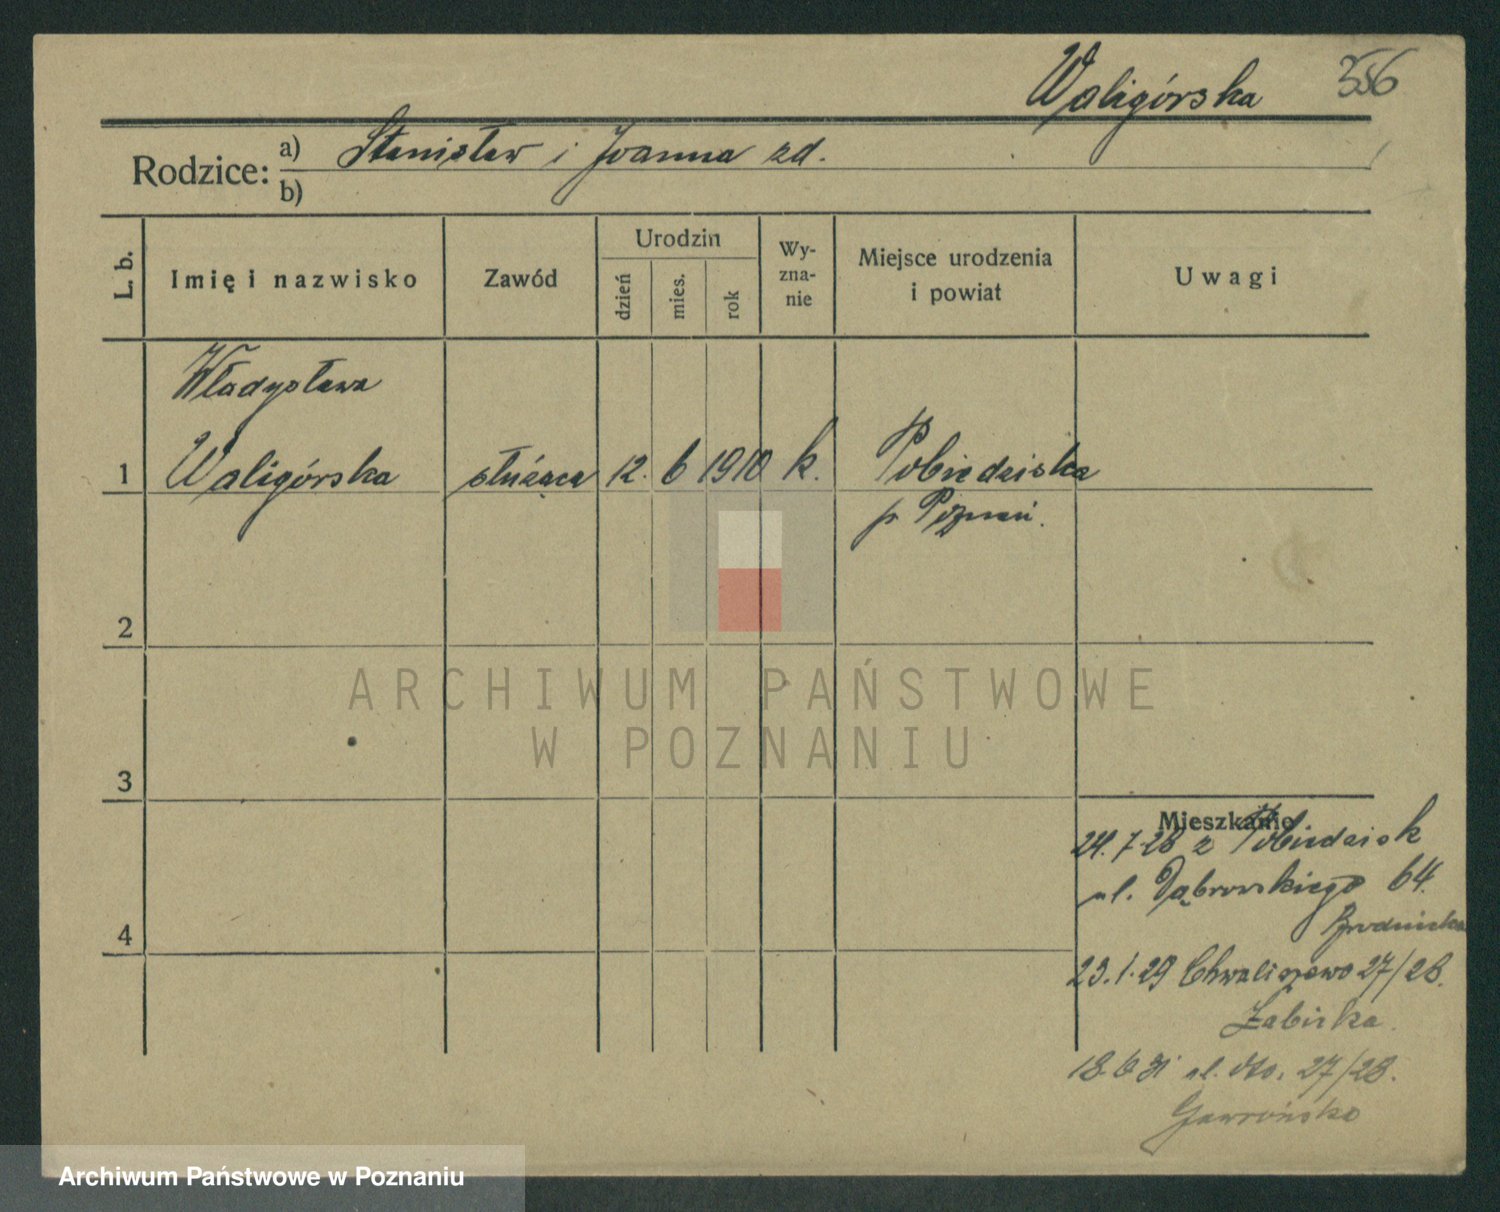 Waligórska 356
Rodzice: a) Stanisław i Joanna zd.
b)
L. b.
Imię i nazwisko
Zawód
Urodzin
dzień
mies.
rok
Wy-
zna-
nie
Miejsce urodzenia
i powiat
Uwagi
Władysława
1 Waligórska służąca 12. 6 1910 k. Pobiedziska
p. Poznań.
2
3
4
Mieszkanie
24.7.28 z Pobiedzisk
ul. Dąbrowskiego 64.
23.1.29 Chwaliszewo 27/28.
Żabicka
18.6 31 ul. dto. 27/28.
Gawrońska
ARCHIWUM PAŃSTWOWE
W POZNANIU
Archiwum Państwowe w Poznaniu